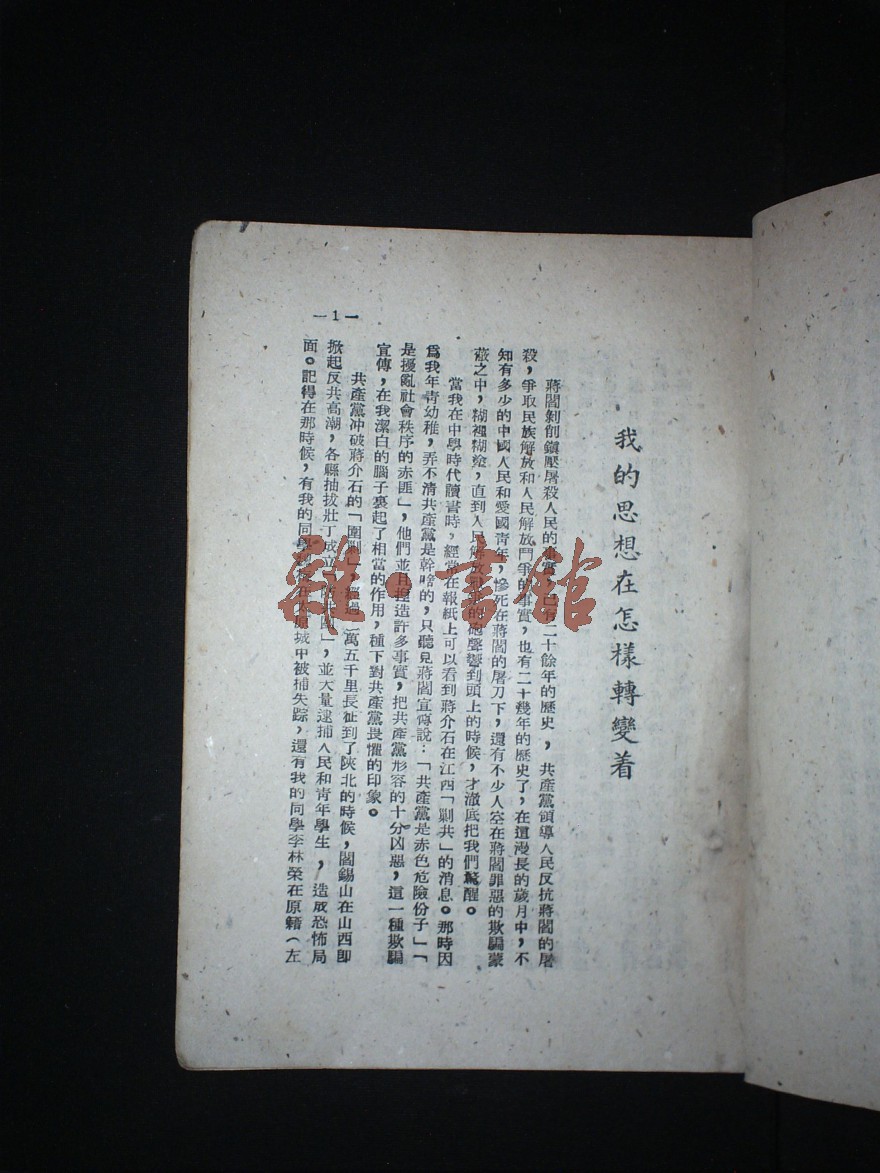 我的思想在怎樣轉變着
蔣閻剝削鎮壓屠殺人民的事實，已有二十餘年的歷史，共產黨領導人民反抗蔣閻的屠
殺，爭取民族解放和人民解放鬥爭的事實，也有二十幾年的歷史了，在這漫長的歲月中，不
知有多少的中國人民和愛國青年，慘死在蔣閻的屠刀下，還有不少人空在蔣閻罪惡的欺騙蒙
蔽之中，糊裡糊塗，直到人民解放的砲聲響到頭上的時候，才澈底把我們驚醒。
當我在中學時代讀書時，經常在報紙上可以看到蔣介石在江西「剿共」的消息。那時因
爲我年青幼稚，弄不清共產黨是幹啥的，只聽見蔣閻宣傳說：「共產黨是赤色危險份子」「
是擾亂社會秩序的赤匪」，他們並且捏造許多事實，把共產黨形容的十分凶惡，這一種欺騙
宣傳，在我潔白的腦子裏起了相當的作用，種下對共產黨畏懼的印象。
共產黨冲破蔣介石的「圍剿」經過二萬五千里長征到了陝北的時候，閻錫山在山西卽
掀起反共高潮，各縣抽拔壯丁成立「團」，並大量逮捕人民和青年學生，造成恐怖局
面。記得在那時候，有我的同學在太原城中被捕失踪，還有我的同學李林榮在原籍（左
—1—
雜·書館